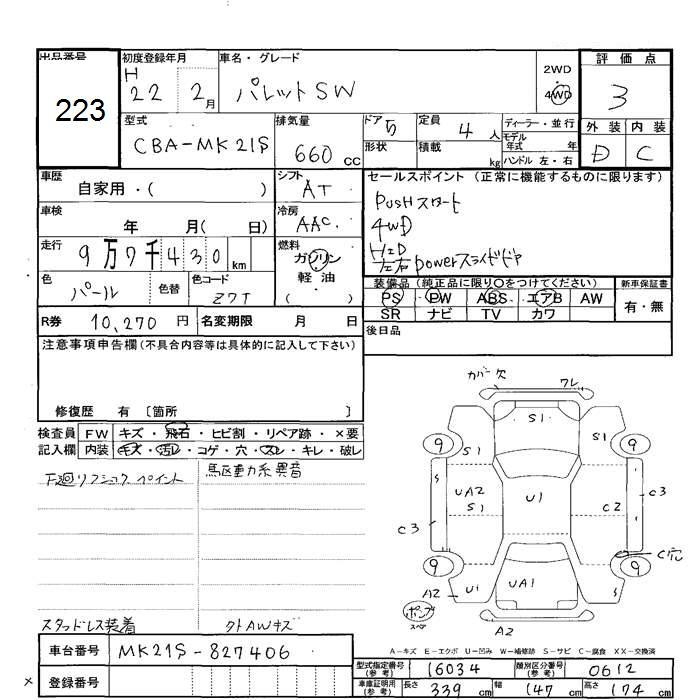 出品番号
223
初度登録年月
H
22 2月
車名・グレード
パレットSW
2WD
4WD
評価点
3
型式
CBA-MK21S
排気量
660 CC
ドア 5
形状
定員 4人
積載 kg
ディーラー・並行
モデル
年式 年
ハンドル 左・右
外装 内装
D C
車歴
自家用・( )
シフト
AT
セールスポイント (正常に機能するものに限ります)
PUSHスタート
4WD
HID
左右powerスライドドア
車検
年 月( 日)
冷房
AAC
走行
9万7千430km
燃料
ガソリン
・
軽油
( )
色
パール
色替
色コード
Z7T
装備品(純正品に限り○をつけてください)
PS PW ABS エアB AW
SR ナビ TV カワ
新車保証書
有・無
R券 10,270円
名変期限 月 日
後日品
注意事項申告欄(不具合内容等は具体的に記入して下さい)
修復歴 有〔箇所 〕
検査員
記入欄
FW キズ・飛石・ヒビ割・リペア跡・×要
内装 キズ・汚レ・コゲ・穴・スレ・キレ・破レ
下廻リフショックペイント
駆動力系異音
スタッドレス装着
クトAWキズ
カバー欠
ワレ
S1
9 S1 S1 9
UA2
S1
U1
C2
C3
C3
C穴
9 9
A2 U1
UA1
A2
A-キズ E-エクボ U-凹み W-補修跡 S-サビ C-腐食 XX-交換済
車台番号 MK21S-827406
× 登録番号
型式指定番号
(参考)
16034
類別区分番号
(参考)
0612
車庫証明用
(参考)
長さ 339cm 幅 147cm 高さ 174cm